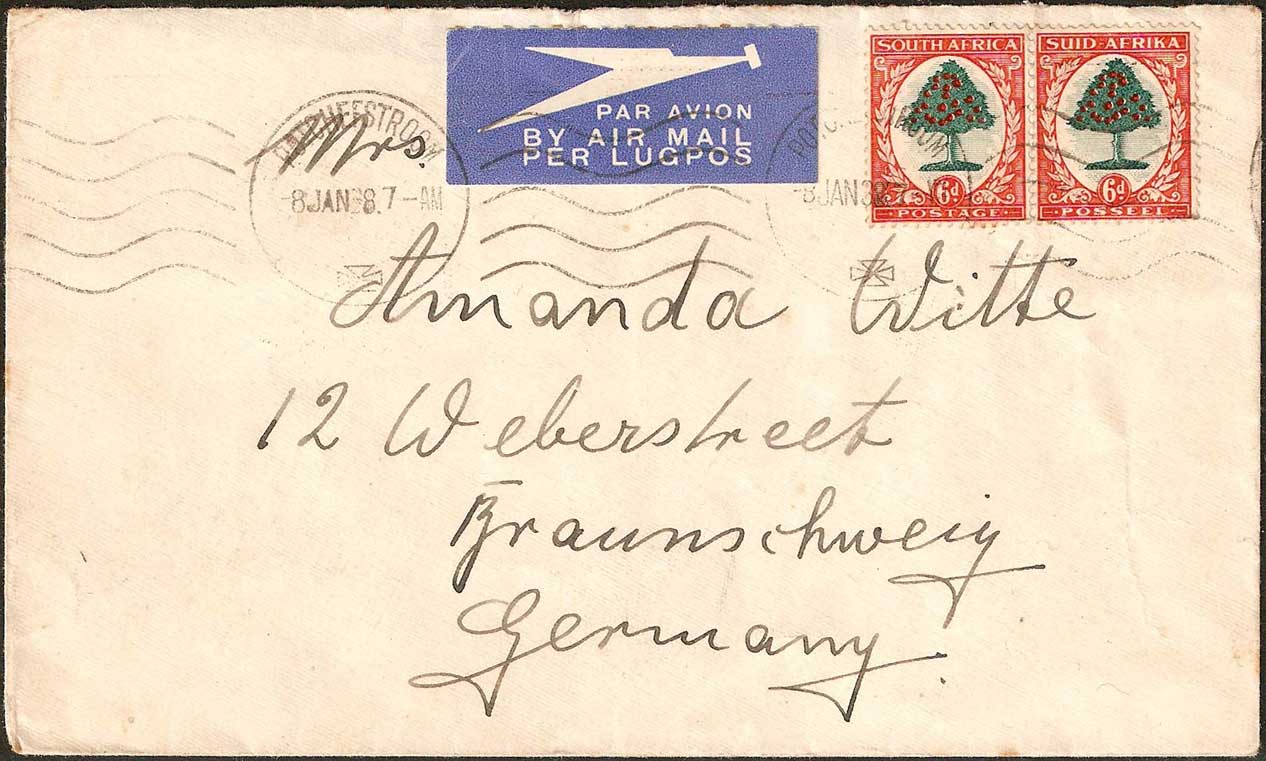 PAR AVION
BY AIR MAIL
PER LUGPOS
SOUTH AFRICA
6d
POSTAGE
SUID-AFRIKA
6d
POSSEEL
8 JAN 38. 7-AM
8 JAN 38 7-AM
Mrs.
Amanda Witte
12 Weberstreet
Braunschweig
Germany.